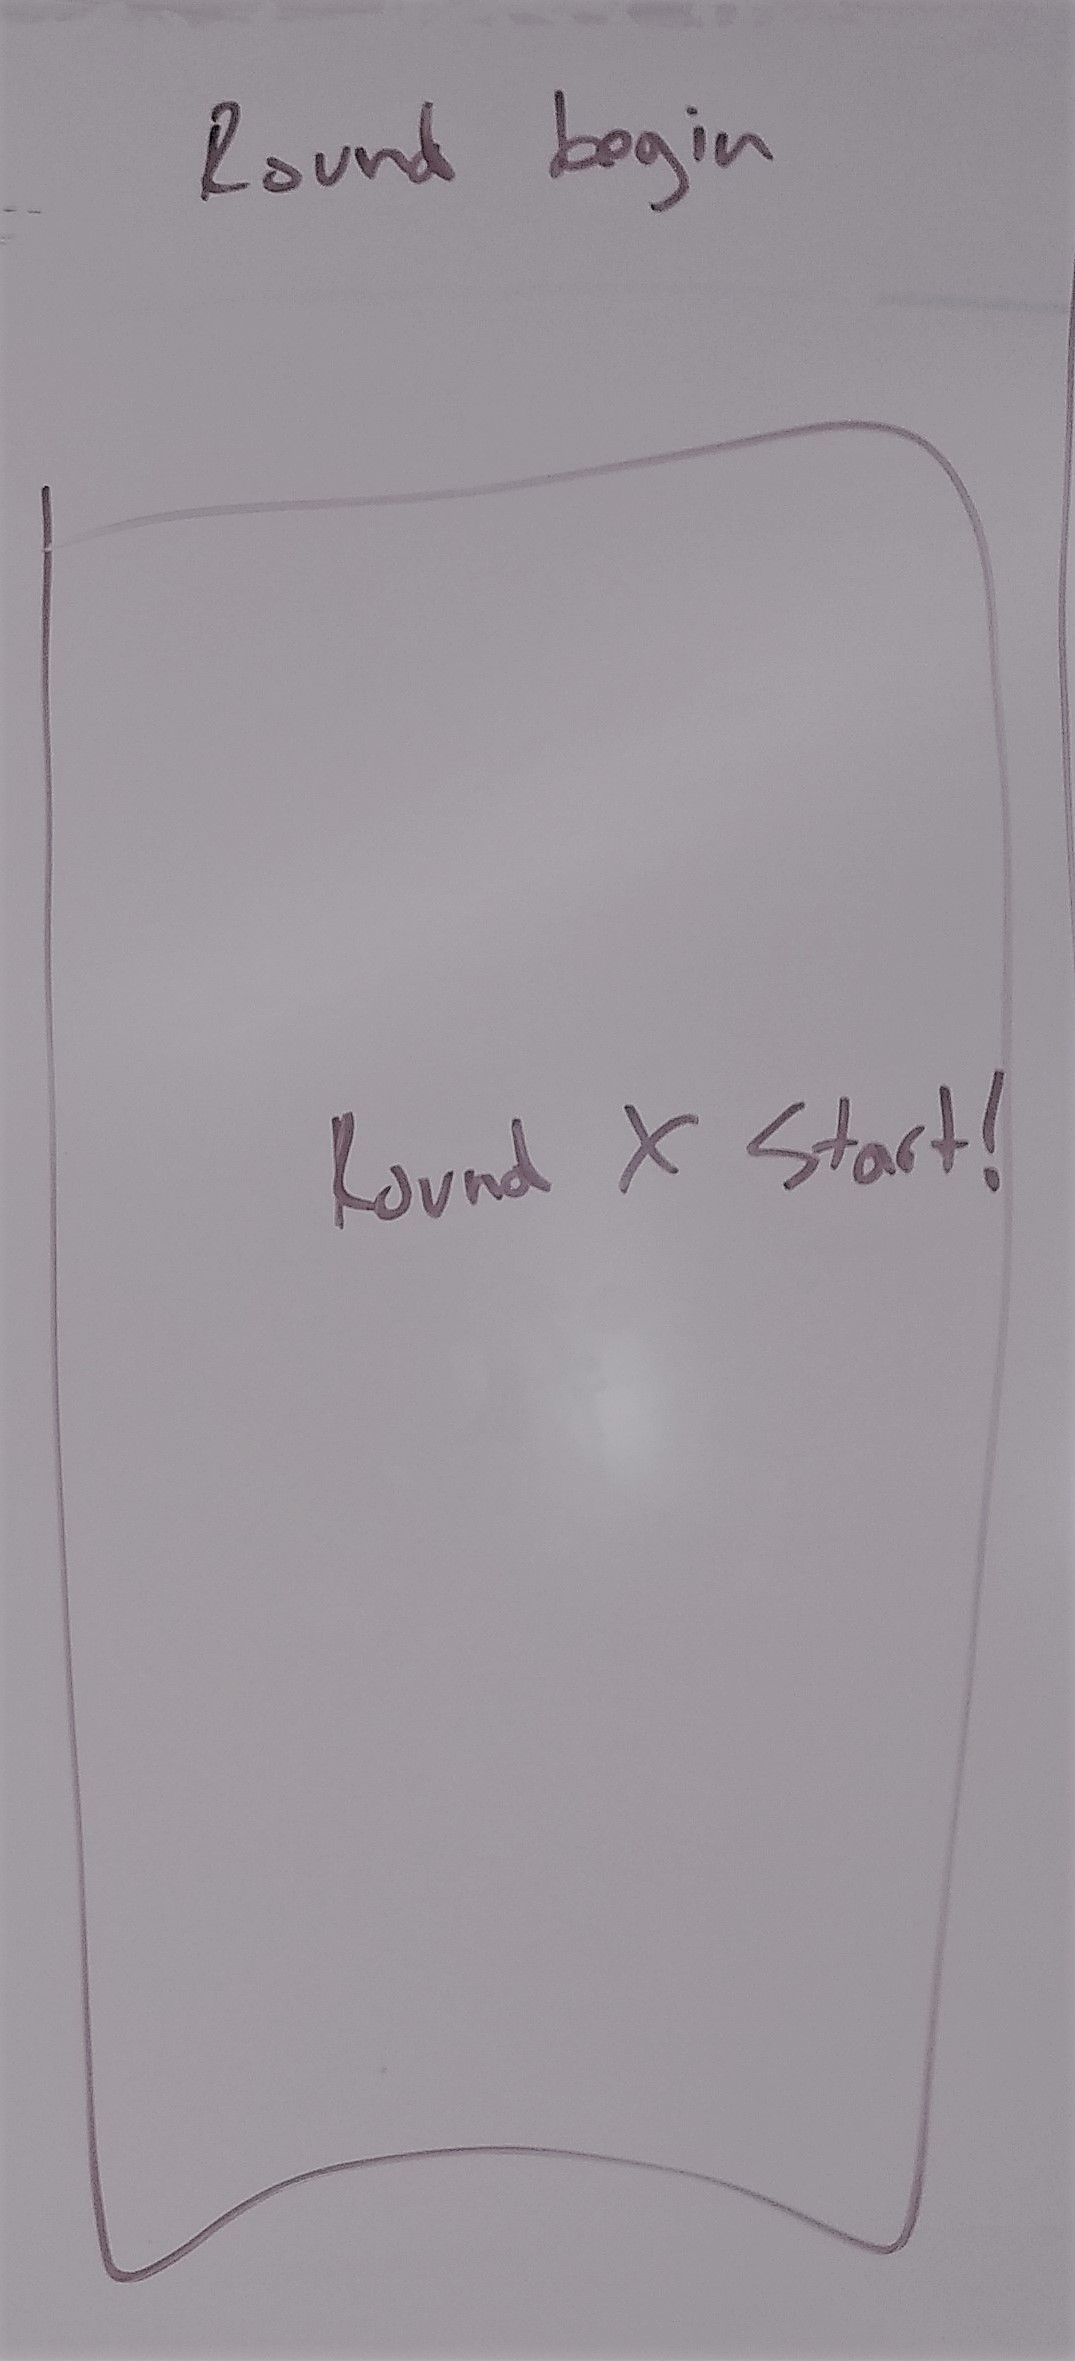 Round begin
Round X Start!